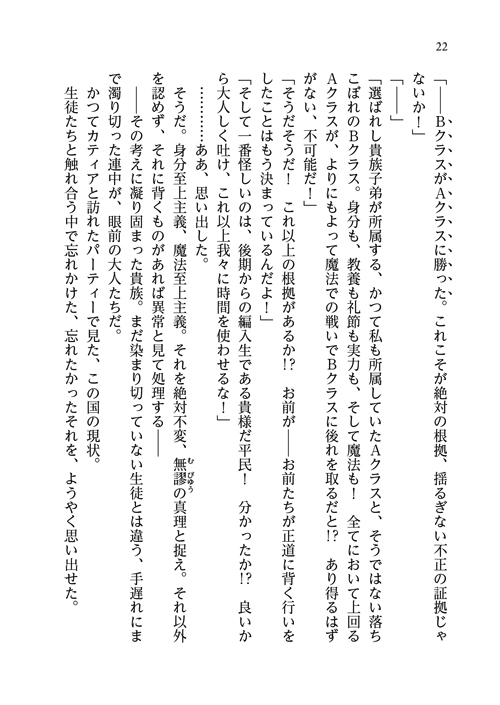 22
「――BクラスがAクラスに勝った。これこそが絶対の根拠、揺るぎない不正の証拠じゃ
ないか！」
「――」
「選ばれし貴族子弟が所属する、かつて私も所属していたAクラスと、そうではない落ち
こぼれのBクラス。身分も、教養も礼節も実力も、そして魔法も！　全てにおいて上回る
Aクラスが、よりにもよって魔法での戦いでBクラスに後れを取るだと!?　あり得るはず
がない、不可能だ！」
「そうだそうだ！　これ以上の根拠があるか!?　お前が――お前たちが正道に背く行いを
したことはもう決まっているんだよ！」
「そして一番怪しいのは、後期からの編入生である貴様だ平民！　分かったか!?　良いか
ら大人しく吐け、これ以上我々に時間を使わせるな！」
…………ああ、思い出した。
そうだ。身分至上主義、魔法至上主義。それを絶対不変、無謬の真理と捉え。それ以外
むびゅう
を認めず、それに背くものがあれば異常と見て処理する――
――その考えに凝り固まった貴族。まだ染まり切っていない生徒とは違う、手遅れにま
で濁り切った連中が、眼前の大人たちだ。
かつてカティアと訪れたパーティーで見た、この国の現状。
生徒たちと触れ合う中で忘れかけた、忘れたかったそれを、ようやく思い出せた。